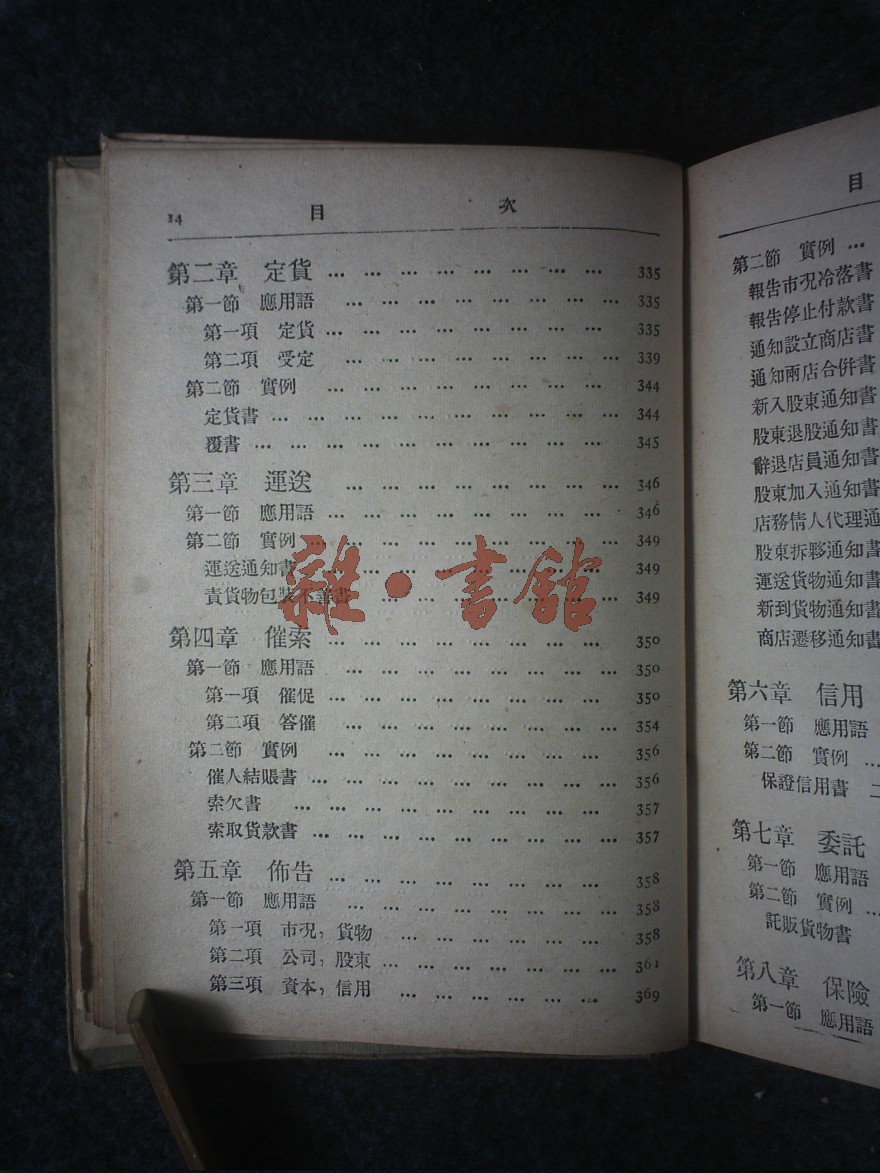 14 目 次
第二章 定貨 … … … … … … … … 335
第一節 應用語 … … … … … … … 335
第一項 定貨 … … … … … … … … 335
第二項 受定 … … … … … … … 339
第二節 實例 … … … … … … … … 344
定貨書 … … … … … … … … … … 344
覆書 … … … … … … … … … … 345
第三章 運送 … … … … … … … 346
第一節 應用語 … … … … … … … … 346
第二節 實例 … … … … … … … … 349
運送通知書 … … … … … … … … 349
責貨物包裝不善書 … … … … … … … 349
第四章 催索 … … … … … … … … 350
第一節 應用語 … … … … … … … 350
第一項 催促 … … … … … … … … 350
第二項 答催 … … … … … … … 354
第二節 實例 … … … … … … … … 356
催人結賬書 … … … … … … … … … 356
索欠書 … … … … … … … … … 357
索取貨款書 … … … … … … … … … 357
第五章 佈告 … … … … … … … … 358
第一節 應用語 … … … … … … … 358
第一項 市况，貨物 … … … … … … 358
第二項 公司，股東 … … … … … … … 361
第三項 資本，信用 … … … … … … 369
雜·書館
目
第二節 實例 …
報告市况冷落書
報告停止付款書
通知設立商店書
通知兩店合併書
新入股東通知書
股東退股通知書
辭退店員通知書
股東加入通知書
店務倩人代理通
股東拆夥通知書
運送貨物通知書
新到貨物通知書
商店遷移通知書
第六章 信用
第一節 應用語
第二節 實例 …
保證信用書
第七章 委託
第一節 應用語
第二節 實例 …
託販貨物書
第八章 保險
第一節 應用語